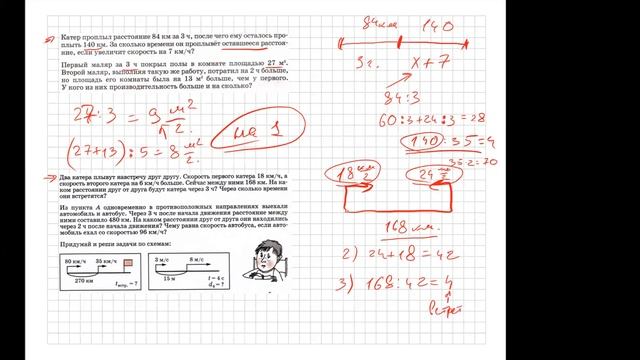 Катер проплыл расстояние 84 км за 3 ч, после чего ему осталось про-
плыть 140 км. За сколько времени он проплывёт оставшееся расстоя-
ние, если увеличит скорость на 7 км/ч?
Первый маляр за 3 ч покрыл полы в комнате площадью 27 м².
Второй маляр, выполняя такую же работу, потратил на 2 ч больше,
но площадь его комнаты была на 13 м² больше, чем у первого.
У кого из них производительность больше и на сколько?
27 : 3 = 9 м²
(27+13) : 5 = 8 м²
на 1
84 км 140
3 ч. x + 7
84 : 3
60 : 3 + 24 : 3 = 28
140 : 35 = 4
35·2=70
Два катера плывут навстречу друг другу. Скорость первого катера 18 км/ч, а
скорость второго катера на 6 км/ч больше. Сейчас между ними 168 км. На ка-
ком расстоянии друг от друга будут катера через 3 ч? Через сколько времени
они встретятся?
Из пункта А одновременно в противоположных направлениях выехали
автомобиль и автобус. Через 3 ч после начала движения расстояние между
ними составило 480 км. На каком расстоянии друг от друга они находились
через 2 ч после начала движения? Чему равна скорость автобуса, если авто-
мобиль ехал со скоростью 96 км/ч?
Придумай и реши задачи по схемам:
80 км/ч 35 км/ч
270 км tвстр. = ?
3 м/с 8 м/с
15 м t = 4 с
d₄ = ?
18 км 24
168 км.
2) 24+18 = 42
3) 168 : 42 = 4